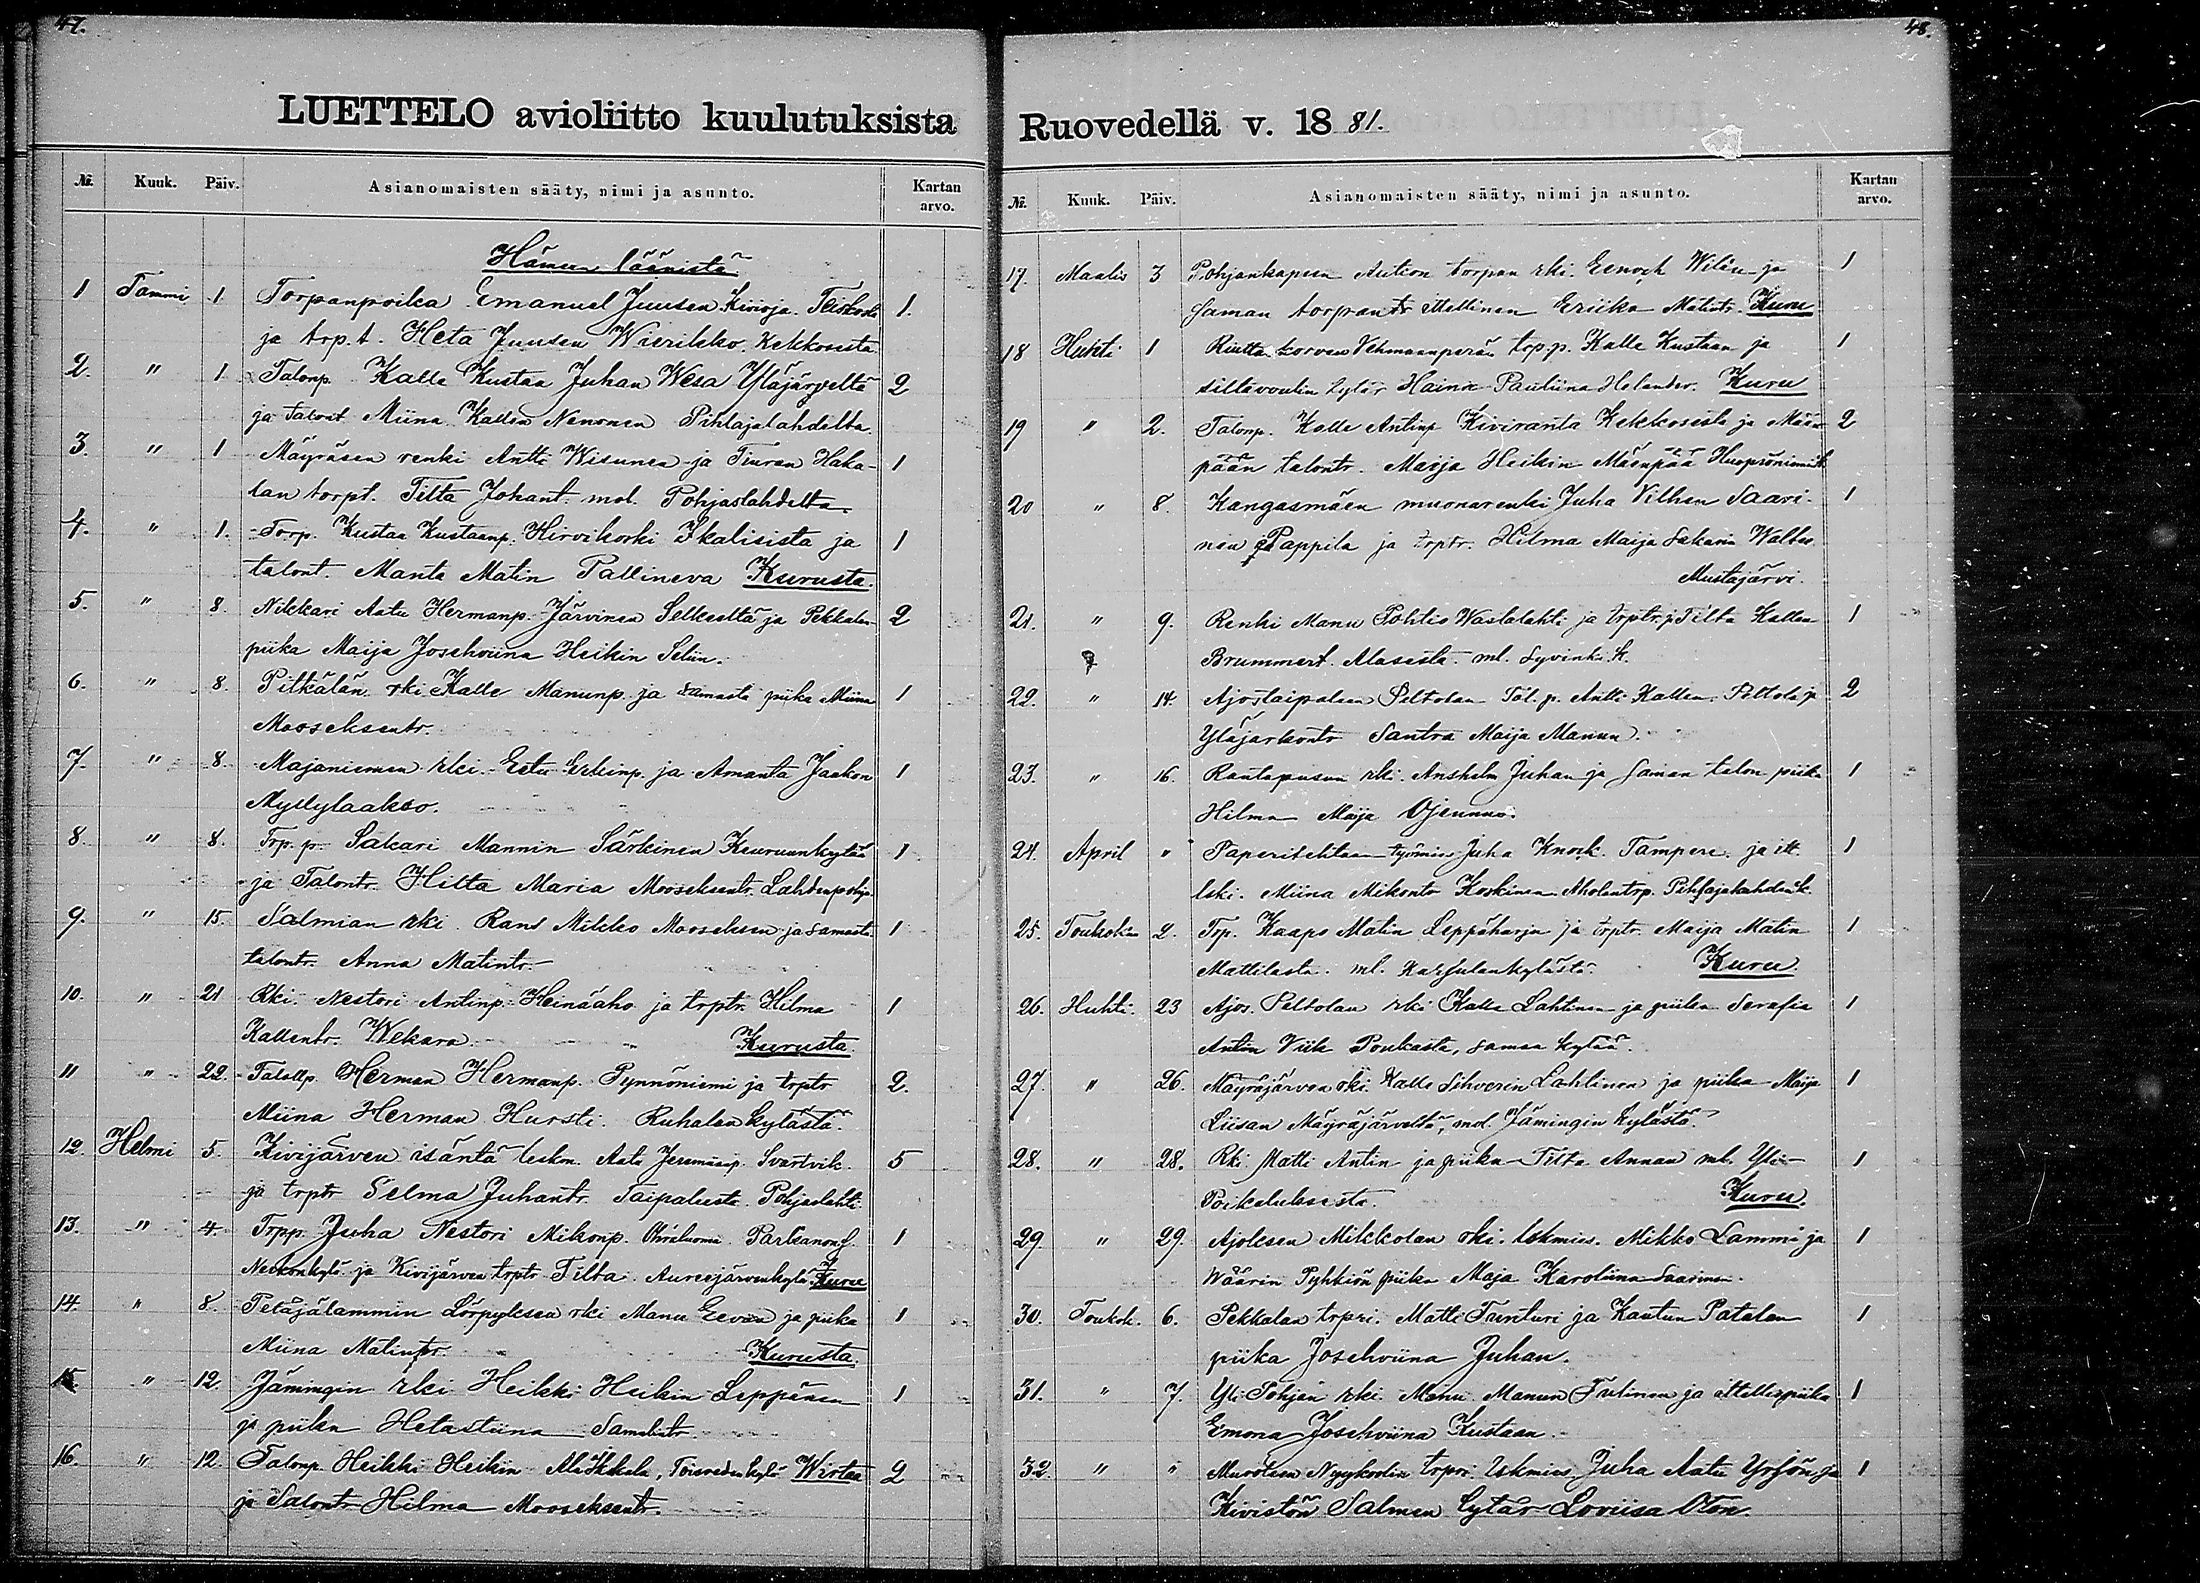 47.
LUETTELO avioliitto kuulutuksista
№. Kuuk. Päiv. Asianomaisten sääty, nimi ja asunto. Kartan arvo.
Hämeen läänistä
1 Tammi 1 Torpanpoika Emanuel Juusen Kivioja Teiskosta 1.
ja trp.t. Heta Juusen Wierikko Kekkosesta
2. " 1 Talonp. Kalle Kustaa Juhan Wesa Yläjärveltä 2
ja talont Miina Kallen Nenonen Pihlajalahdelta.
3. " 1 Mäyräsen renki Antti Wisunen ja Tiuran Haka- 1
lan torpt. Tilta Johant. mol. Pohjaslahdelta.
4. " 1. Torp. Kustaa Kustaanp. Hirvikorki Ikalisista ja 1
talont. Manta Matin Pallineva Kurusta.
5. " 8. Nikkari Aatu Hermanp. Järvinen Selkeeltä ja Pekkalan 2
piika Maija Josehviina Heikin Selin.
6. " 8. Pitkälän rki Kalle Manunp. ja samasta piika Miina 1
Mooseksentr.
7. " 8. Majaniemen rki. Eetu Erkinp. ja Amanta Jaakon 1
Myllylaakso.
8. " 8. Trp. p. Sakari Mannin Särkinen Keuruunkylää 1
ja Talontr. Hilta Maria Mooseksentr. Lahdenpohja
9. " 15. Salmian rki. Rans Mikko Mooseksen ja samasta 1
talontr. Anna Matintr.
10. " 21 Rki. Nestori Antinp. Heinäaho ja trptr. Hilma 1
Kallentr. Wekara " Kurusta.
11 " 22. Talollp. Herman Hermanp. Pynnöniemi ja trptr 2.
Miina Herman Hursti. Ruhalan kylästä.
12. Helmi 5. Kivijärven isäntä leskm. Aatu Jeremiasp. Svartvik. 5
ja trptr Selma Juhantr. Taipaleesta Pohjaslahti.
13. " 4. Trpp. Juha Nestori Mikonp. Ohraluoma Parkanon 1
ja Kivijärven trptr Tilta. Aureejärvenkylä Kuru
14. " 8. Petäjälammin Lörpyksen rki Manu Eevan ja piika 1
Miina Matintr. Kurusta.
15. " 12. Jämingin rki Heikki Heikin Leppänen 1
ja piika Hetastiina Samelintr
16. " 12. Talonp. Heikki Heikin Ala Kkala, Toisveden kylä Wirtaa 2
ja Talontr Hilma Mooseksentr.
48.
Ruovedellä v. 1881.
№. Kuuk. Päiv. Asianomaisten sääty, nimi ja asunto. Kartan arvo.
17. Maalis 3 Pohjankapeen Aution torpan rki. Eenoch Wilen ja 1
saman torpantr Mellinen Eriika Matintr. Kuru
18 Huhti 1 Riutta korven Vehmaanperän trp.p. Kalle Kustaan ja 1
siltavoutin tytär Haina Pauliina Helander. Kuru
19 " 2. Talonp. Kalle Antinp Kiviranta Kekkosesta ja Mäen 2
pään talontr. Maija Heikin Mäenpää
20 " 8. Kangasmäen muonarenki Juha Vilhen Saari- 1
nen Pappila ja trptr. Hilma Maija Sakarin
Mustajärvi.
21. " 9. Renki Manu Pohtio Wastalahti ja trptr. Tilta Kallen 1
Brummert. Alasesta. ml. Syvink. k.
22. " 14. Ajostaipaleen Peltolan Tal. p. Antti Kallen Peltola ja 2
Yläjarkontr Santra Maija Manun.
23. " 16. Rantapusun rki. Anshelm Juhan ja saman talon piika 1
Hilma Maija Ojeunno.
24. April " Paperitehtaan työmies Juha Knock. Tampere ja itt. 1
lski. Miina Mikontr Koskinen Aholantrp. Pihlajalahden k.
25. Toukokuu 2. Trp. Kaapo Matin Leppäharja ja trptr. Maija Matin 1
Mattilasta. ml. Karjulankylästä. Kuru.
26. Huhti. 23 Ajos. Peltolan rki Kalle Lahtinen ja piika Serafia 1
Antin Viik Poukasta, samaa kylää.
27. " 26. Mäyräjärven rki. Kalle Sihverin Lahtinen ja piika Maija 1
Liisan Mäyräjärveltä, mol. Jämingin kylästä.
28. " 28. Rki Matti Antin ja piika Tilta Annan ml. Yli- 1
Poikeluksesta. Kuru.
29. " 29. Ajoksen Mikkolan rki. lskmies. Mikko Lammi ja 1
Wäärin Pyhkiön piika Maja Karoliina Saarinen.
30. Toukok. 6. Pekkalan trpri. Matti Tunturi ja Kautun Patalan 1
piika Josehviina Juhan.
31. " 7. Yli Pohjan rki. Manu Manun Tulinen ja ittellispiika 1
Emona Josehviina Kustaan.
32. " " Muroleen Nyykoolin trpri. lskmies Juha Aatu Yrjön ja 1
Kivistön Salmen tytär Loviisa Oton.